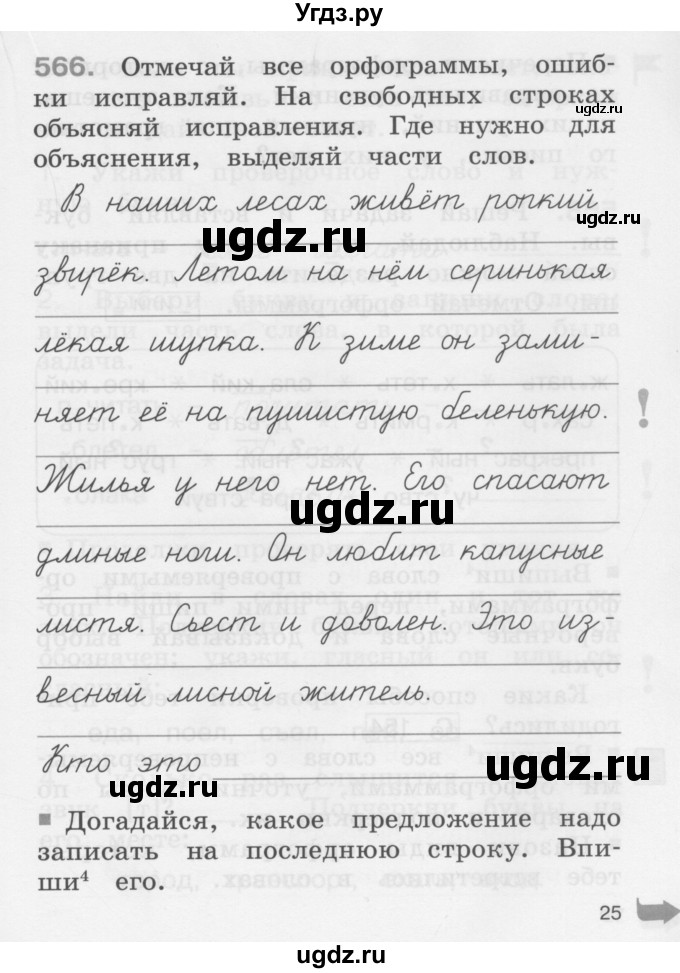 Угдз.ру
566. Отмечай все орфограммы, ошиб-
ки исправляй. На свободных строках
объясняй исправления. Где нужно для
объяснения, выделяй части слов.
ugdz.ru
В наших лесах живёт ропкий
ugdz.ru
ugdz.ru
звирёк. Летом на нём серинькая
лёкая шупка. К зиме он зами-
няет её на пушистую беленькую.
Жилья у него нет. Его спасают
ugdz.ru
длиные ноги. Он любит капусные
листя. Сьест и доволен. Это из-
весный лисной житель.
Кто это
ugdz.ru
ugdz.ru
Догадайся, какое предложение надо
записать на последнюю строку. Впи-
ши⁴ его.
25
ugdz.ru
ugdz.ru